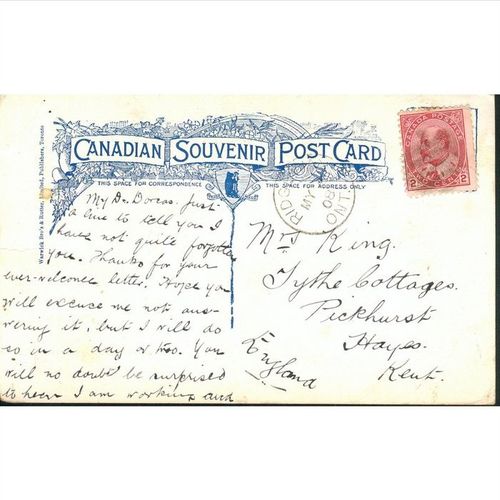 CANADIAN SOUVENIR POST CARD
THIS SPACE FOR CORRESPONDENCE
THIS SPACE FOR ADDRESS ONLY
Warwick Bro's & Rutter, Limited, Publishers, Toronto
CANADA POSTAGE
2 CENTS 2
RIDG
MY
08
ONT
My Dr Dorcas. Just
a line to tell you I
have not quite forgotten
you. Thanks for your
ever-welcome letter. Hope you
will excuse me not ans-
wering it, but I will do
so in a day or two. You
will no doubt be surprised
to hear I am working and
Mrs King.
Tythe Cottages.
Pickhurst
Hayes.
Kent.
England